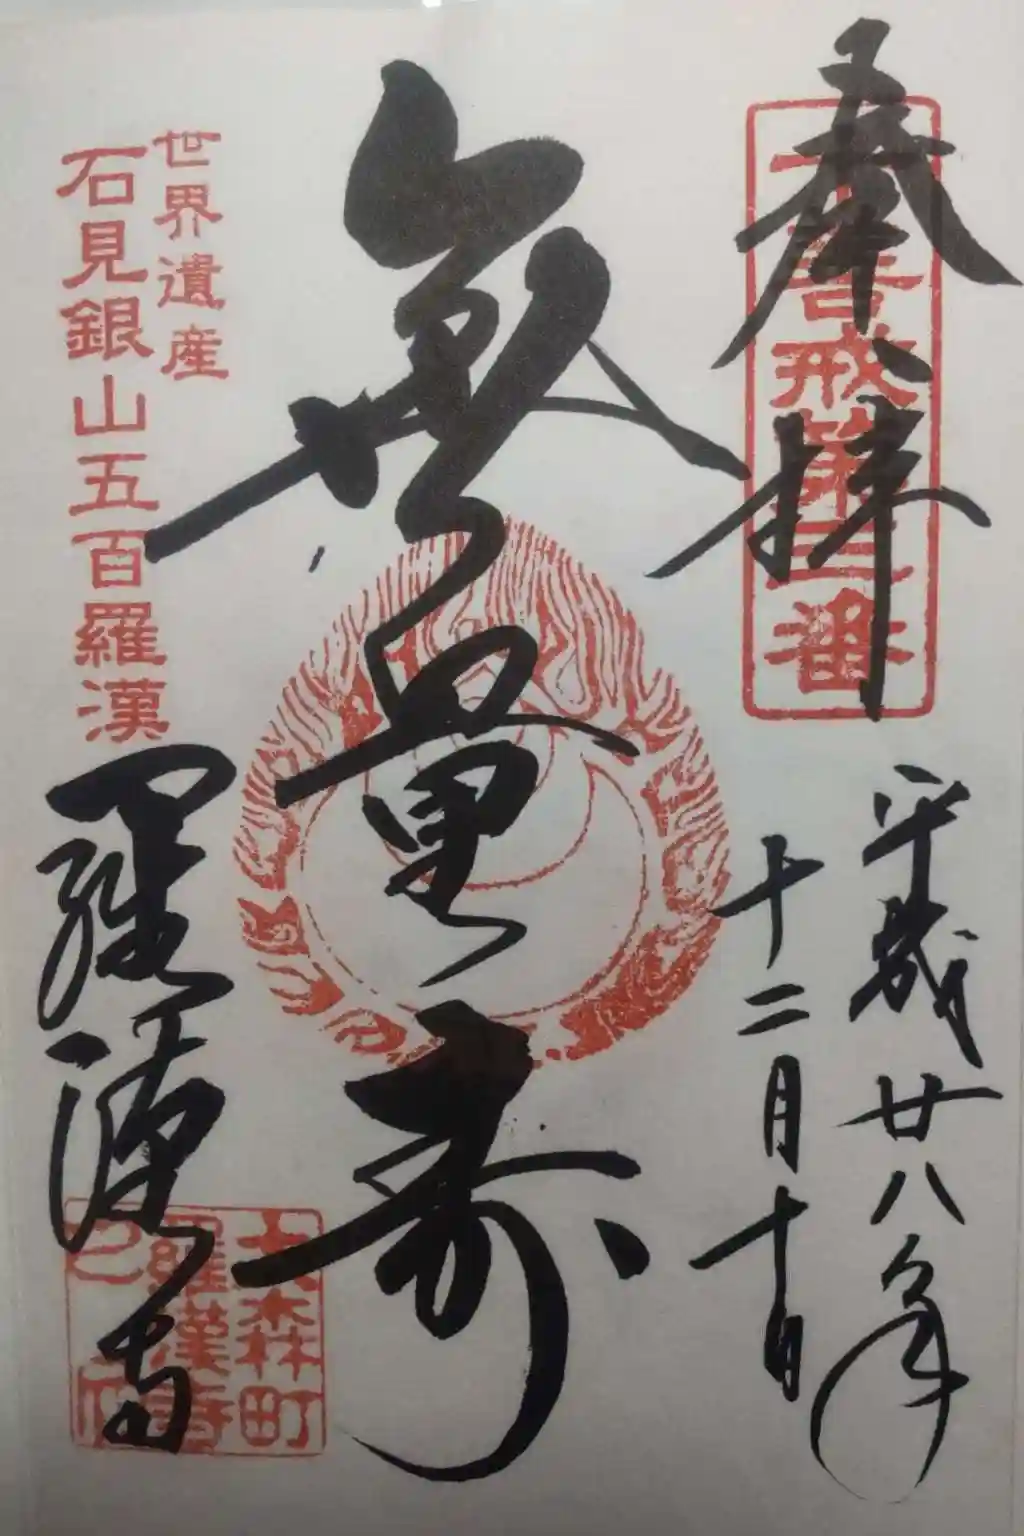 奉拝
十善戒第三番
平成廿八年
十二月十日
無量寿
世界遺産
石見銀山五百羅漢
羅漢寺
大森町
羅漢寺